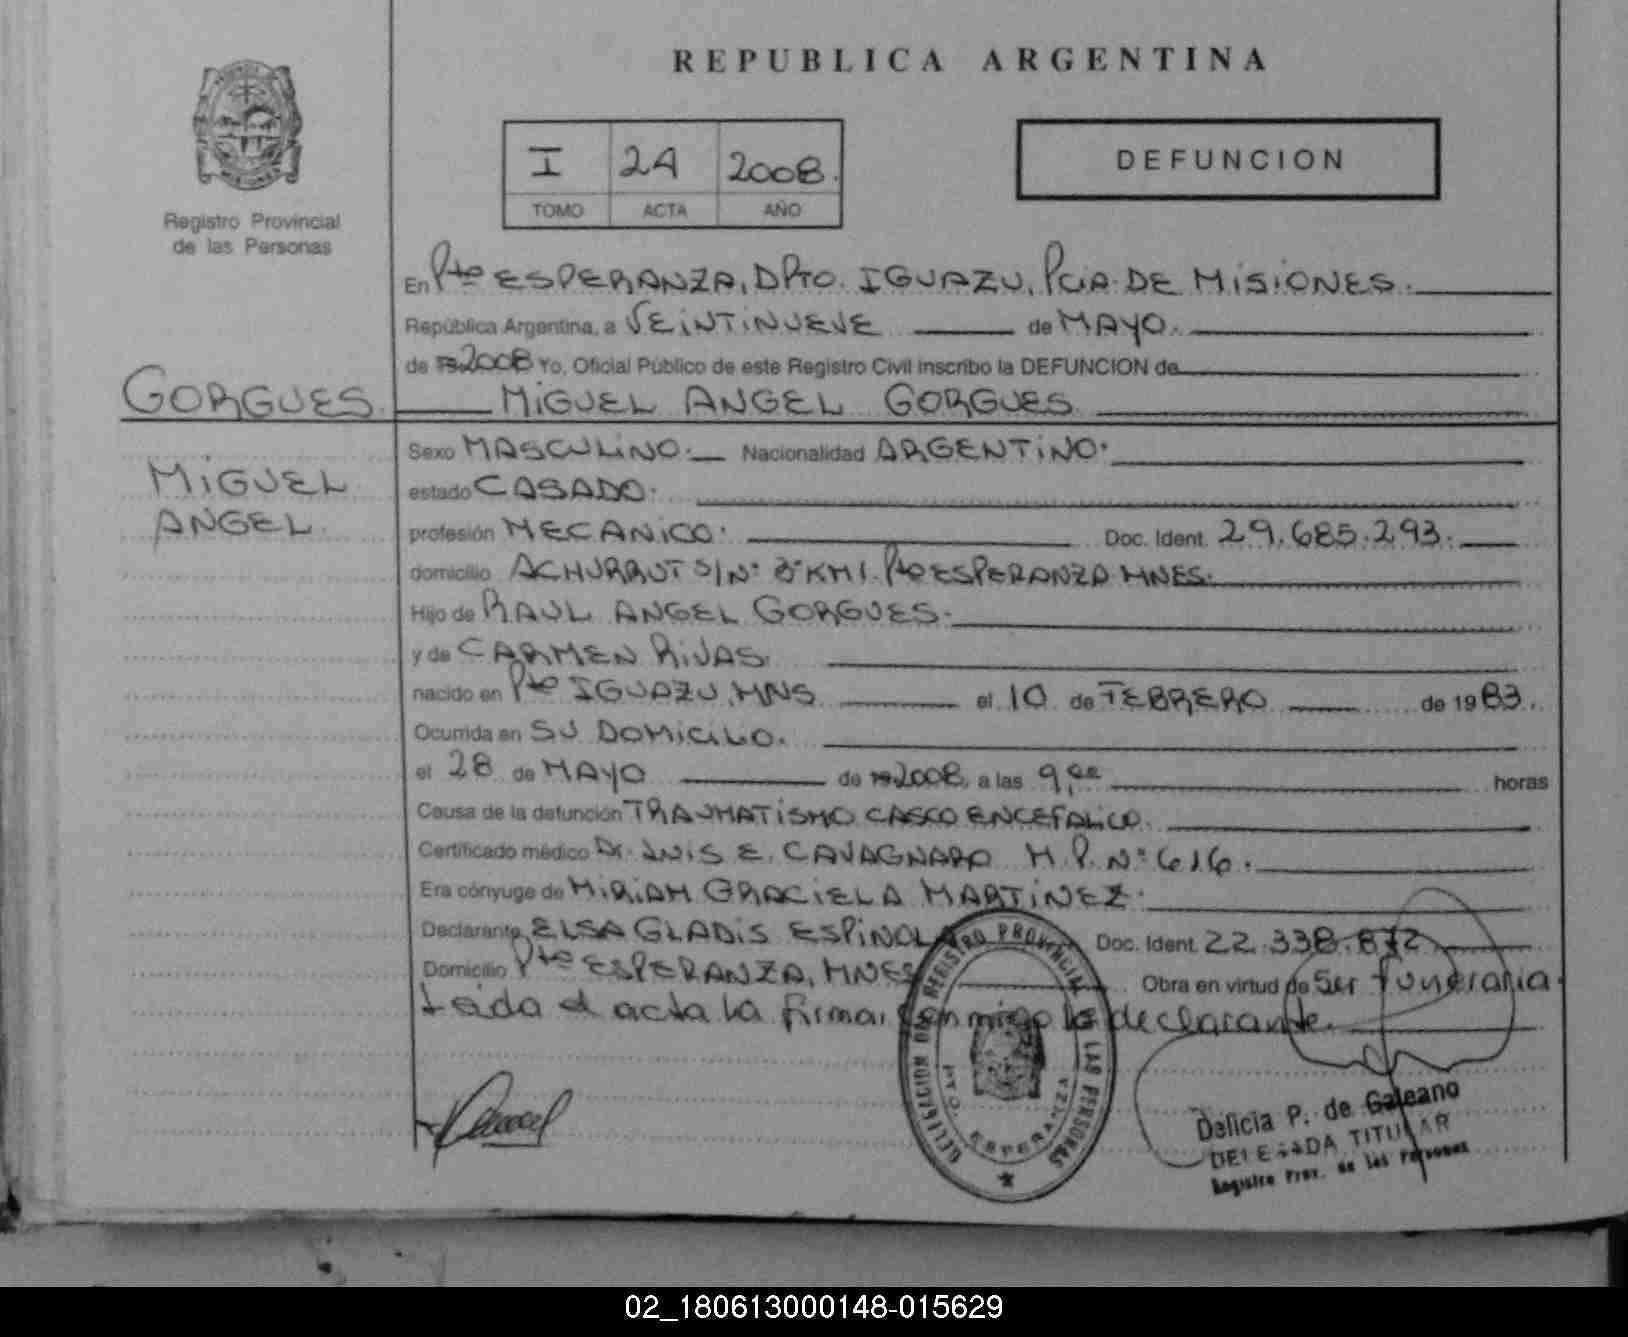 REPUBLICA ARGENTINA
Registro Provincial
de las Personas
I 24 2008.
TOMO ACTA AÑO
DEFUNCION
En Pto ESPERANZA, DPTO. IGUAZU, PCIA. DE MISIONES.
República Argentina, a VEINTINUEVE de MAYO.
de 2008 Yo, Oficial Público de este Registro Civil inscribo la DEFUNCION de
GORGUES MIGUEL ANGEL GORGUES
MIGUEL
ANGEL
Sexo MASCULINO. Nacionalidad ARGENTINO.
estado CASADO.
profesión MECANICO. Doc. Ident. 29.685.293.
domicilio ACHURRUT S/N° Bº KM1. Pto ESPERANZA MNES.
Hijo de RAUL ANGEL GORGUES.
y de CARMEN RIVAS.
nacido en Pto IGUAZU, MNS el 10 de FEBRERO de 1983.
Ocurrida en SU DOMICILIO.
el 28 de MAYO de 2008, a las 9, horas
Causa de la defunción TRAUMATISMO CASCO ENCEFALICO.
Certificado médico Dr. LUIS E. CAVAGNARO M.P. N° 616.
Era cónyuge de MIRIAM GRACIELA MARTINEZ.
Declarante ELSA GLADIS ESPINOLA Doc. Ident. 22.338.872
Domicilio Pto ESPERANZA, MNES Obra en virtud de Ser funeraria.
Leida el acta la firman conmigo la declarante.
DELEGACION DEL REGISTRO PROVINCIAL DE LAS PERSONAS
PTO. ESPERANZA
Delicia P. de Galeano
DELEGADA TITULAR
Registro Prov. de las Personas
02_180613000148-015629